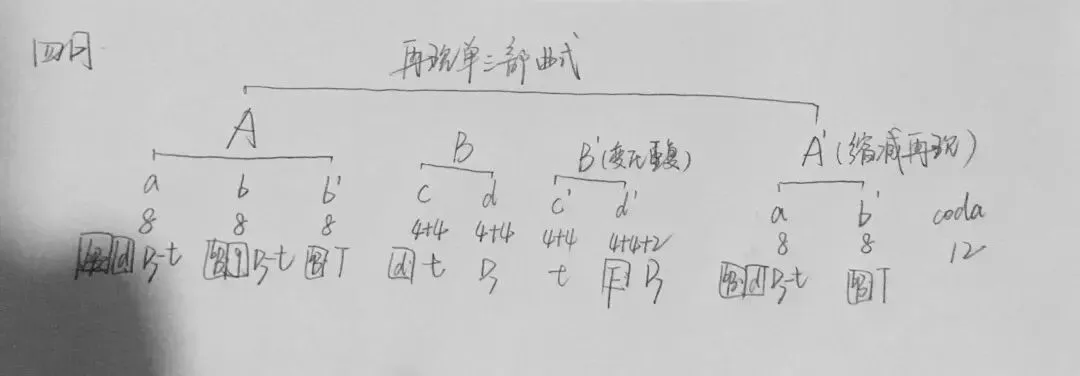 四月
再现单三部曲式
A B B'(变化重复) A'(缩减再现)
a b b' c d c' d' a b' coda
8 8 8 4+4 4+4 4+4 4+4+2 8 8 12
d D-t D-t T d t D t F D d D-t T